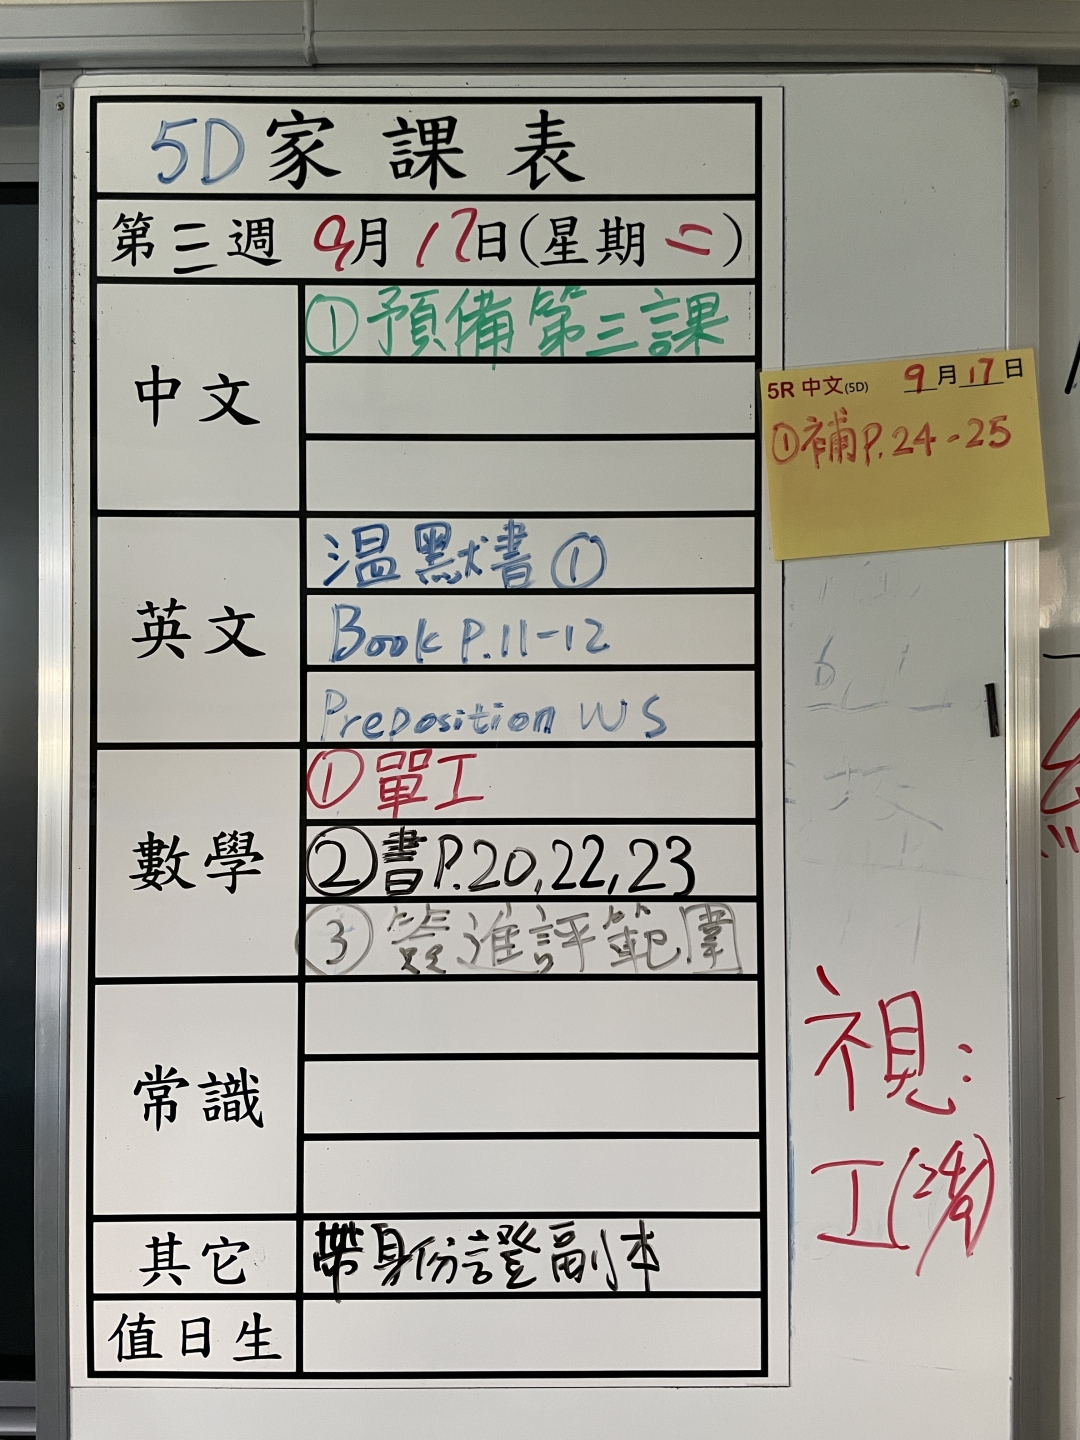 5D家課表
第三週 9月17日(星期二)
中文
①預備第三課
英文
温默書①
Book P.11-12
Preposition WS
數學
①單工
②書P.20,22,23
③簽進評範圍
常識
其它
帶身份證副本
值日生
5R 中文(5D) 9月17日
①補P.24-25
視:
工(24/9)